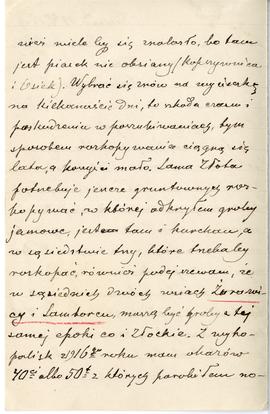 nież wiele by się znalazło, bo tam
jest piasek nie obsiany (Koprzywnica
i Osiek). Wybrać się znów na wycieczkę
na kilkanaście dni, to szkoda czasu i
w poszukiwaniach, tym
sposobem rozkopywania ciągną się
lata, a korzyści mało. Sama Złota
potrzebuje jeszcze gruntownych roz-
kopywań, w której odkryłem groby
jamowe, jest tam i kurchan, a
w sąsiedztwie trzy, które trzebaby
rozkopać, również podejrzewam, że
w sąsiednich dwóch wsiach Żurawi-
cy i Samborcu, muszą być groby z tej
samej epoki co i Złockie. Z wyko-
palisk z 1916 roku mam okazów
40 albo 50 z których porobiłem no-